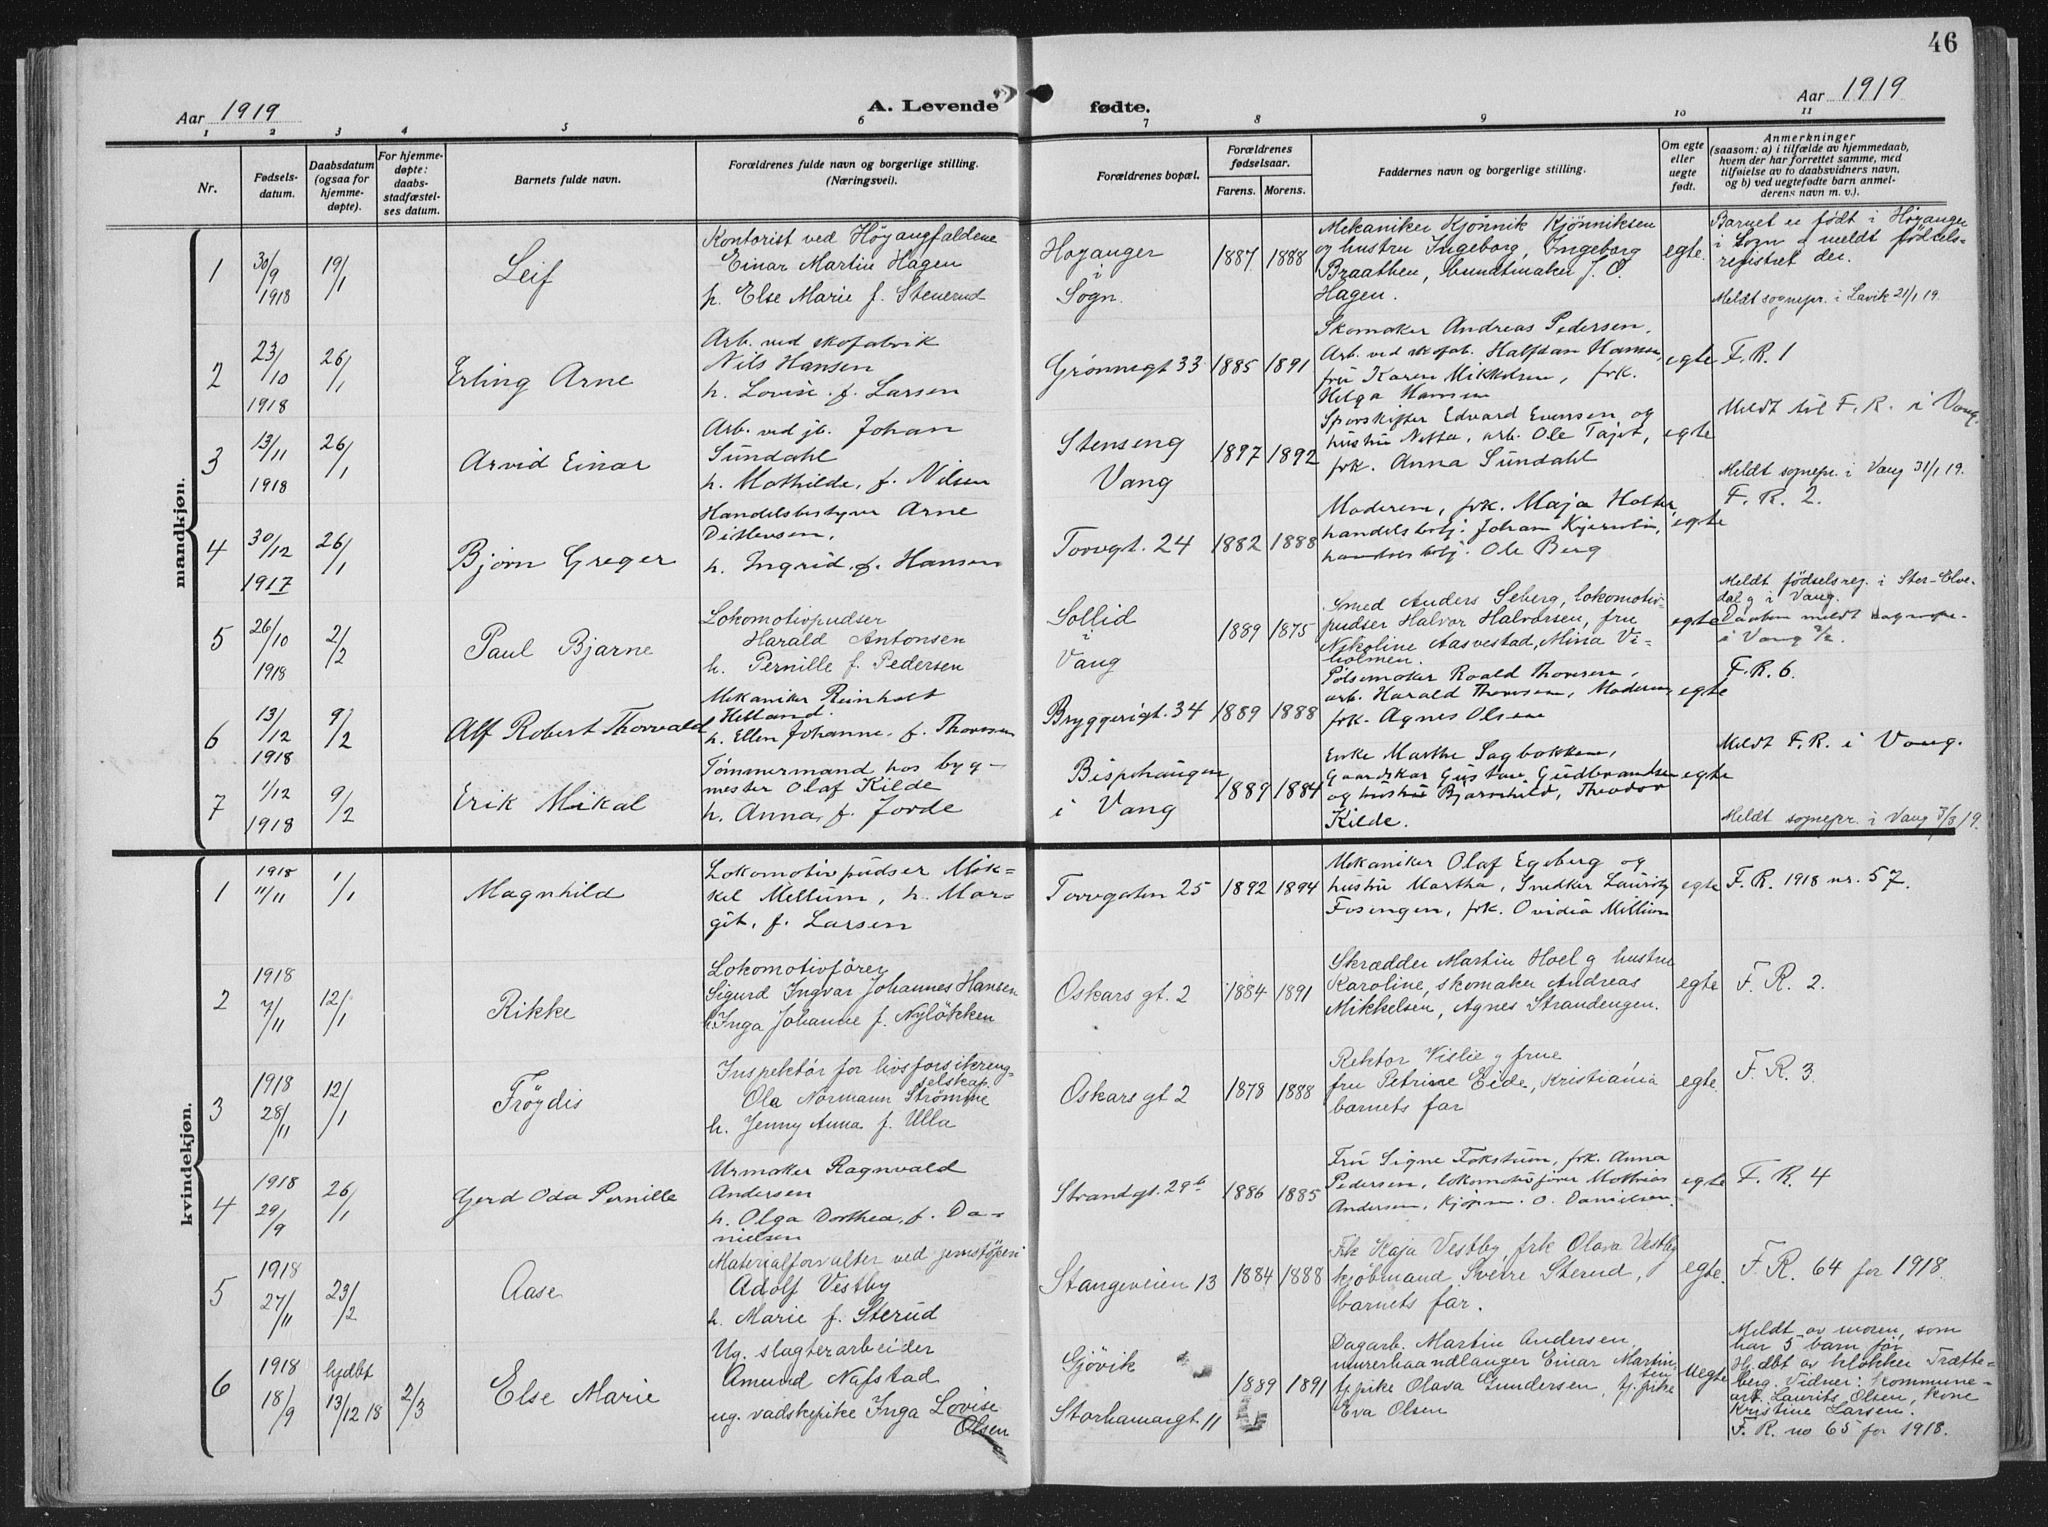 46
Aar 1919
A. Levende fødte.
Aar 1919
1 2 3 4 5 6 7 8 9 10 11
Nr.
Fødsels-
datum.
Daabsdatum
(ogsaa for
hjemme-
døpte).
For hjemme-
døpte:
daabs-
stadfæstel-
ses datum.
Barnets fulde navn.
Forældrenes fulde navn og borgerlige stilling.
(Næringsvei).
Forældrenes bopæl.
Forældrenes
fødselsaar.
Farens. Morens.
Faddernes navn og borgerlige stilling.
Om egte
eller
uegte
født.
Anmerkninger
(saasom: a) i tilfælde av hjemmedaab,
hvem der har forrettet samme, med
tilføielse av to daabsvidners navn,
og b) ved uegtefødte barn anmel-
derens navn m. v.).
mandkjøn.
1
30/9
1918
19/1
Leif
Kontorist ved Høyangfaldene
Einar Martin Hagen
h. Else Marie f. Stenerud
Høyanger
i
Sogn.
1887 1888
Mekaniker Kjønnik Kjønniksen
og hustru Ingeborg, Ingeborg
Braathen, buntmaker J. O.
Hagen.
egte.
Barnet er født i Høyanger
i Sogn og meldt fødsels-
registret der.
Meldt sognepr. i Lavik 21/1 19.
2
23/10
1918
26/1
Erling Arne
Arb. ved skofabrik
Nils Hansen
h. Lovise f. Larsen
Grønnegt 33
1885 1891
Skomaker Andreas Pedersen,
Arb. ved skofab. Halfdan Hansen,
fru Karen Mikkelsen, frk.
Helga Hansen
egte
F. R. 1
3
13/11
1918
26/1
Arvid Einar
Arb. ved jb. Johan
Sundahl
h. Mathilde, f. Nilsen
Stenseng
Vang
1897 1892
Sporskifter Edvard Evensen og
hustru Netta, arb. Ole Tajet,
frk. Anna Sundahl
egte
Meldt til F. R. i Vang.
Meldt sognepr. i Vang 31/1 19.
4
30/12
1917
26/1
Bjørn Greger
Handelsbestyrer Arne
Ditlevsen,
h. Ingrid f. Hansen
Torvgt. 24
1882 1888
Moderen, frk. Maja Holter,
handelsbetj. Johan
handelsbetj. Ole Berg
egte
F. R. 2.
5
26/10
1918
2/2
Paul Bjarne
Lokomotivpudser
Harald Antonsen
h. Pernille f. Pedersen
Sollid
i
Vang
1889 1875
Smed Anders Seberg, lokomotiv-
pudser Halvor Halvorsen, fru
Nikoline Aasvestad, Mina Vi-
holmen.
egte
Meldt fødselsreg. i Stor-Elve-
dal og i Vang.
Daaben meldt sognepr.
i Vang
6
13/12
1918
9/2
Alf Robert Thorvald
Mekaniker Reinholt
Helland.
h. Ellen Johanne, f. Thoresen
Bryggerigt. 34
1889 1888
Pølsemaker Roald Thoresen,
arb. Harald Thoresen, Moderen,
frk. Agnes Olsen
egte
F. R. 6.
7
1/12
1918
9/2
Erik Mikal
Tømmermand hos byg-
mester Olaf Kilde
h. Anna, f. Jorde
Bispehaugen
i Vang
1889 1884
Enke Marthe Sagbakken,
Gaardskar Gustav Gudbrandsen
og hustru Bjarnhild, Theodor
Kilde.
egte
Meldt F. R. i Vang.
Meldt sognepr. i Vang 3/3 19.
kvindekjøn.
1
1918
11/11
1/1
Magnhild
Lokomotivpudser Mik-
kel Mellum, h. Mar-
git, f. Larsen
Torvgaten 25
1892 1894
Mekaniker Olaf Egeberg og
hustru Martha, Snedker Lauritz
Fosengen, frk. Ovidia Millum
egte
F. R. 1918 nr. 57.
2
1918
7/11
12/1
Rikke
Lokomotivfører
Sigurd Ingvar Johannes Hansen
h. Inga Johanne f. Nyløkken
Oskars gt. 2
1884 1891
Skrædder Martin Hoel og hustru
Karoline, skomaker Andreas
Mikkelsen, Agnes Strandengen.
egte
F. R. 2.
3
1918
28/11
12/1
Frøydis
Inspektør for livsforsikreng-
selskap.
Ola Normann Strømme
h. Jenny Anna f. Ulla
Oskars gt 2
1878 1888
Rektor Vislie og frue
fru Petrine Eide, Kristiania
barnets far
egte.
F. R. 3.
4
1918
29/9
26/1
Gerd Oda Pernille
Urmaker Ragnvald
Andersen
h. Olga Dorthea, f. Da-
nielsen
Strandgt. 29b
1886 1885
Fru Signe Fokstuen, frk. Anna
Pedersen, lokomotivfører Mathias
Andersen, kjøpm. O. Danielsen.
egte
F. R. 4
5
1918
27/11
23/2
Aase
Materialforvalter ved jernstøperi
Adolf Vestby
h. Marie f. Sterud
Stangeveien 13
1884 1888
Frk Kaja Vestby, frk Olava Vestby
kjøbmand Sverre Sterud,
barnets far.
egte.
F. R. 64 for 1918.
6
1918
18/9
hjdbt
13/12 18
2/3
Else Marie
Ug. slagterarbeider
Amund Nafstad
ug. vadskepike Inga Lovise
Olsen
Gjøvik
Storhamargt. 11
1889 1891
Dagarb. Martin Andersen
murerhaandlanger Einar Martin-
sen
tj.pike Olava Gundersen, tj.pike
Eva Olsen
Uegte
Meldt av moren, som
har 5 barn før
Hj.dbt av klokker Trætte-
berg. Vidner: kommune-
arb. Laurits Olsen, kone
Kristine Larsen.
F. R. no 65 for 1918.